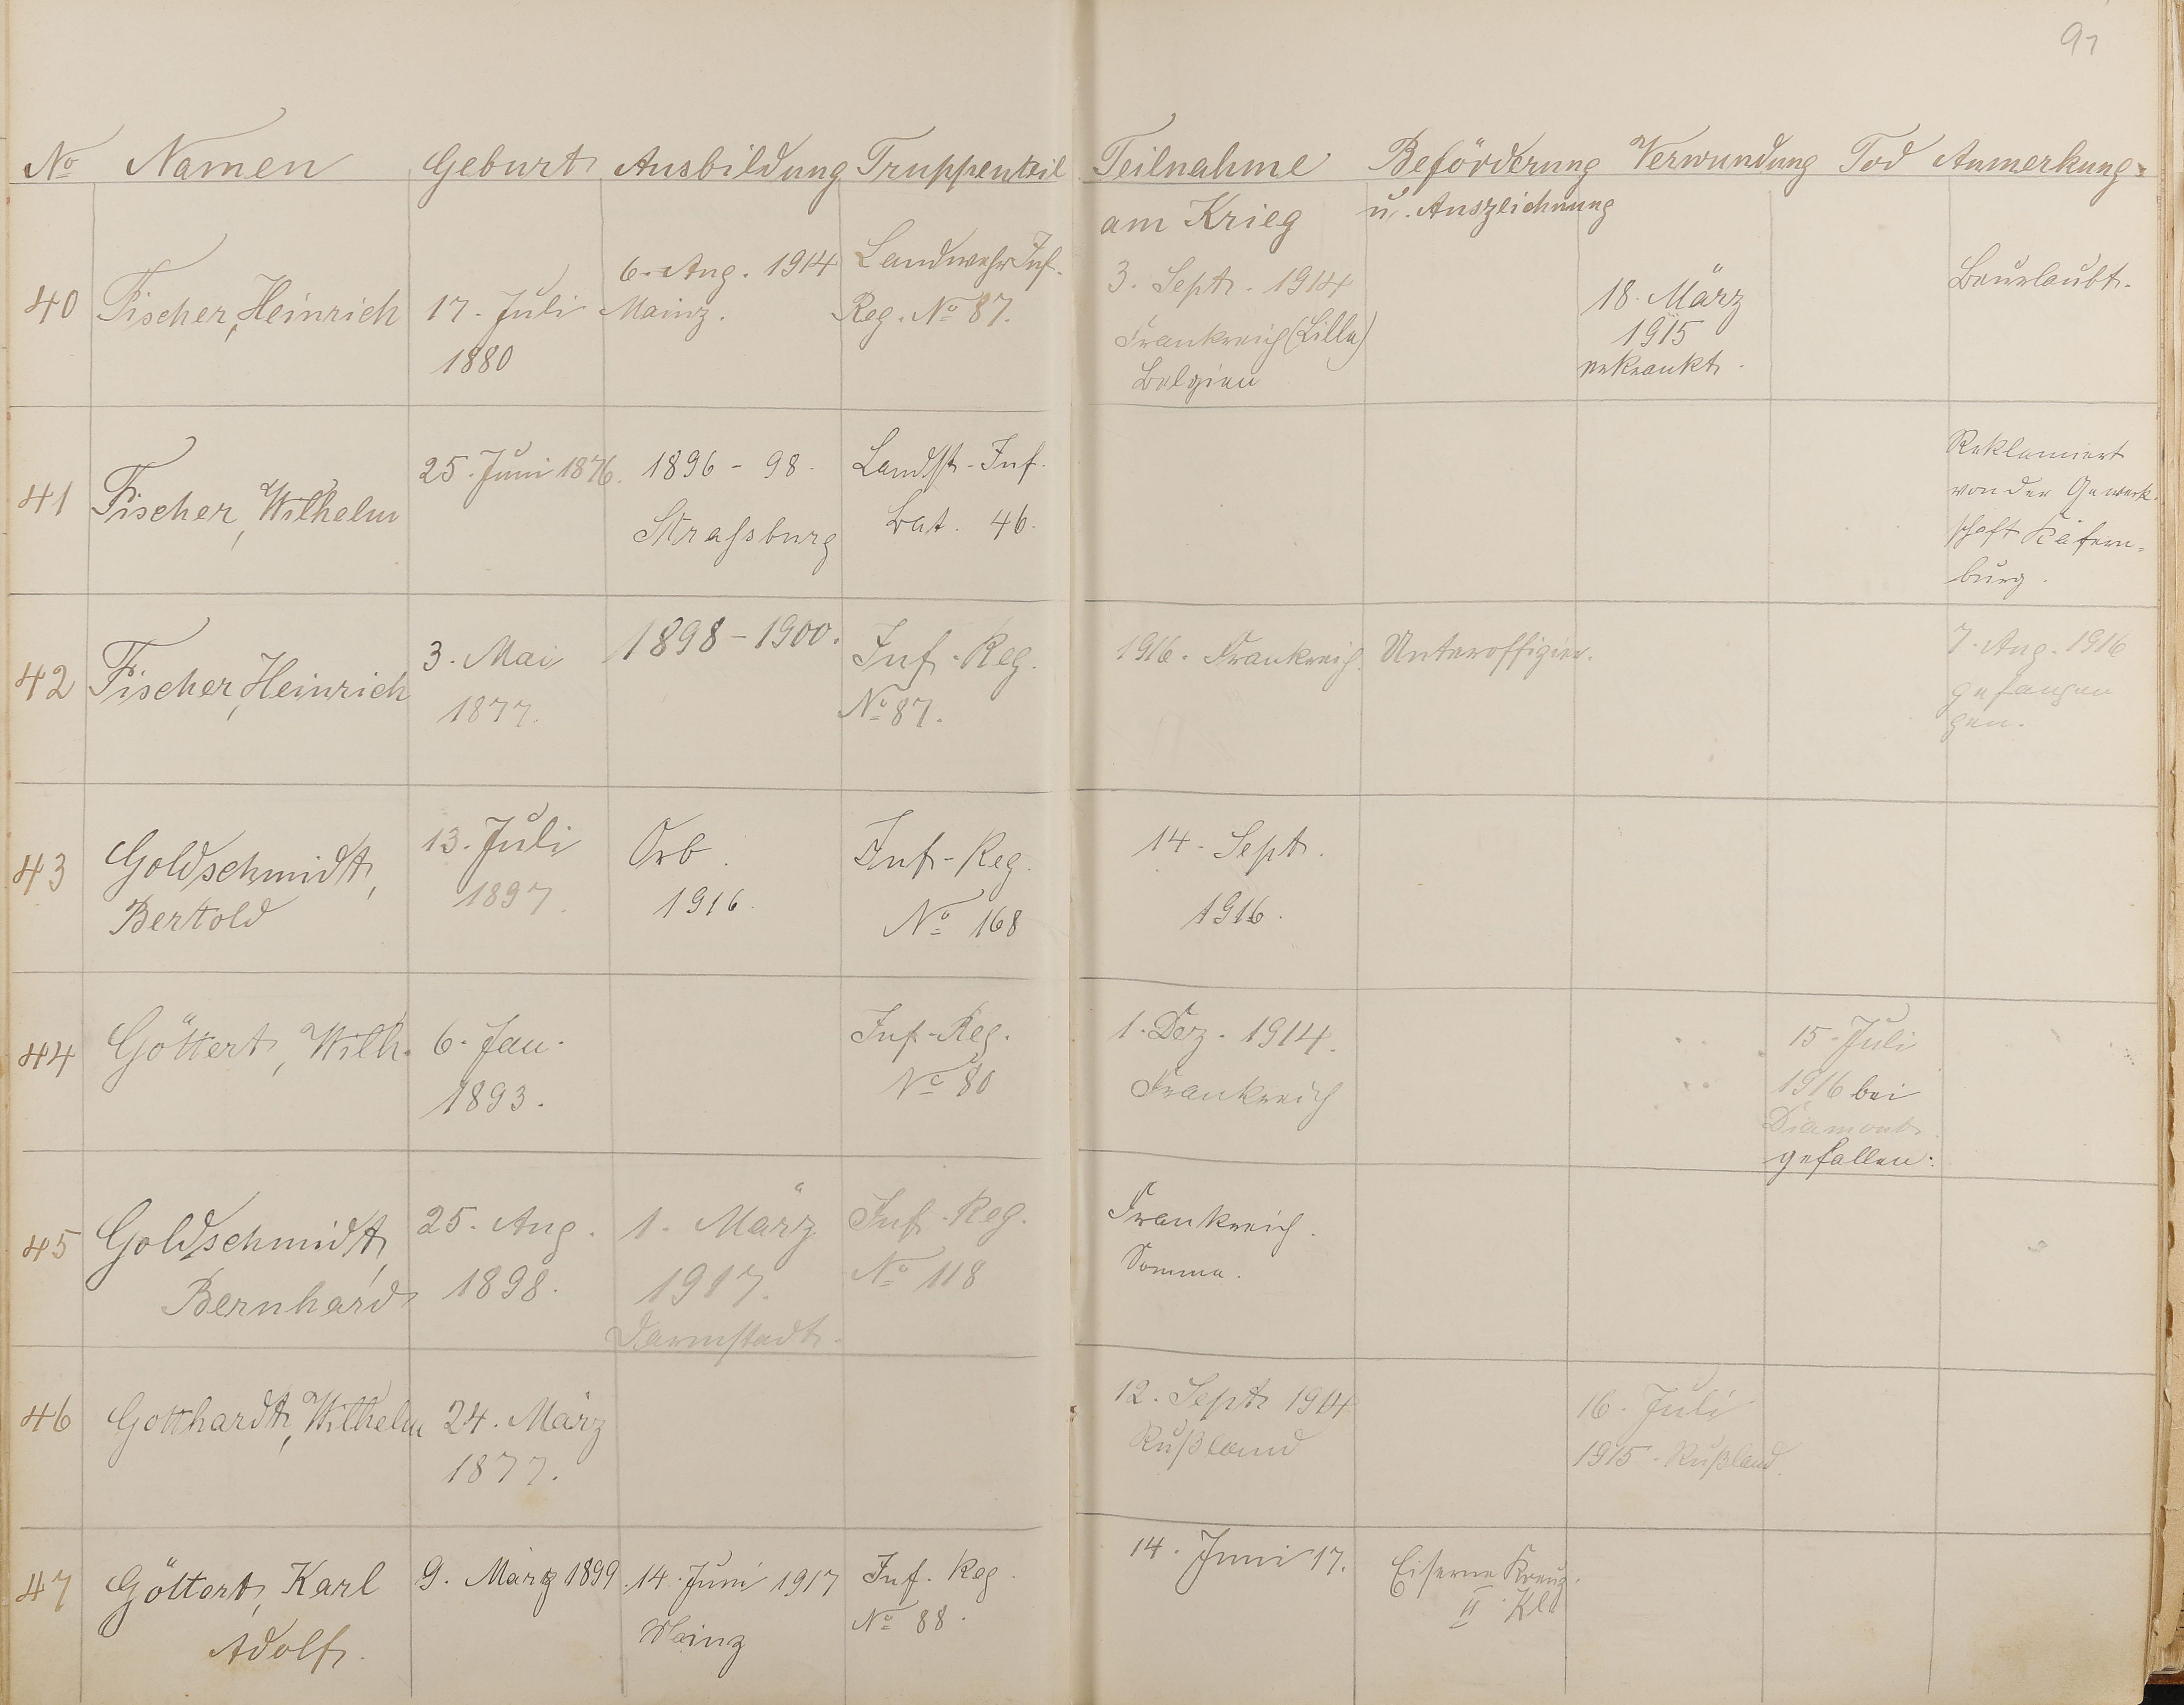 91
No Namen Geburt Ausbildung Truppenteil Teilnahme Beförderung Verwundung Tod Anmerkung.
am Krieg u. Auszeichnung
40 Fischer, Heinrich
17. Juli
1880
6. Aug. 1914
Mainz.
Landwehr Inf.
Reg. No 87.
3. Sept. 1914
Frankreich (Lille)
Belgien
18. März
1915
erkrankt.
Beurlaubt.
41 Fischer, Wilhelm
25. Juni 1876.
1896 - 98.
Strassburg
Landst. - Inf.
Bat. 46.
Reklamiert
von der Gewerk-
schaft Käfern-
burg.
42 Fischer, Heinrich
3. Mai
1877.
1898 - 1900.
Inf. - Reg.
No 87.
1916. Frankreich.
Unteroffizier.
7. Aug. 1916
gefangen
gen.
43 Goldschmidt,
Bertold
13. Juli
1897.
Orb.
1916.
Inf. - Reg.
No 168
14. Sept.
1916.
44 Göttert, Wilh.
6. Jan.
1893.
Inf. - Reg.
No 80
1. Dez. 1914.
Frankreich
15. Juli
1916 bei
gefallen.
45 Goldschmidt,
Bernhard
25. Aug.
1898.
1. März
1917.
Darmstadt.
Inf. - Reg.
No 118
Frankreich.
Somme.
46 Gotthardt, Wilhelm
24. März
1877.
12. Sept. 1914
Rußland
16. Juli
1915. Rußland.
47 Göttert, Karl
Adolf.
9. März 1899.
14. Juni 1917
Mainz
Inf. Reg.
No 88.
14. Juni 17.
Eiserne Kreuz.
II. Kl.